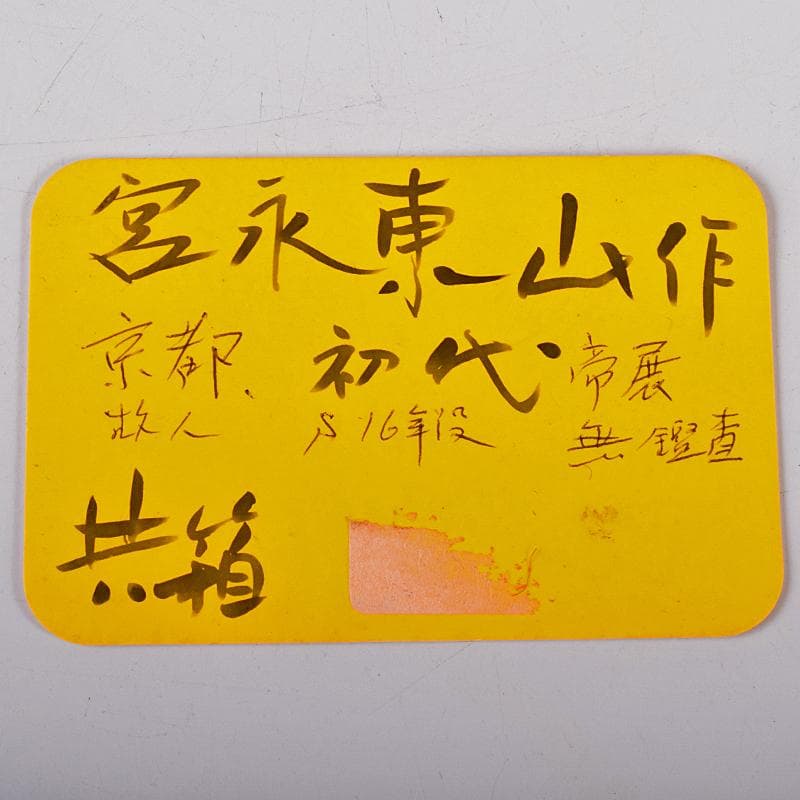 宮永東山作
京都 初代 帝展
故人 S16年没 無鑑査
共箱